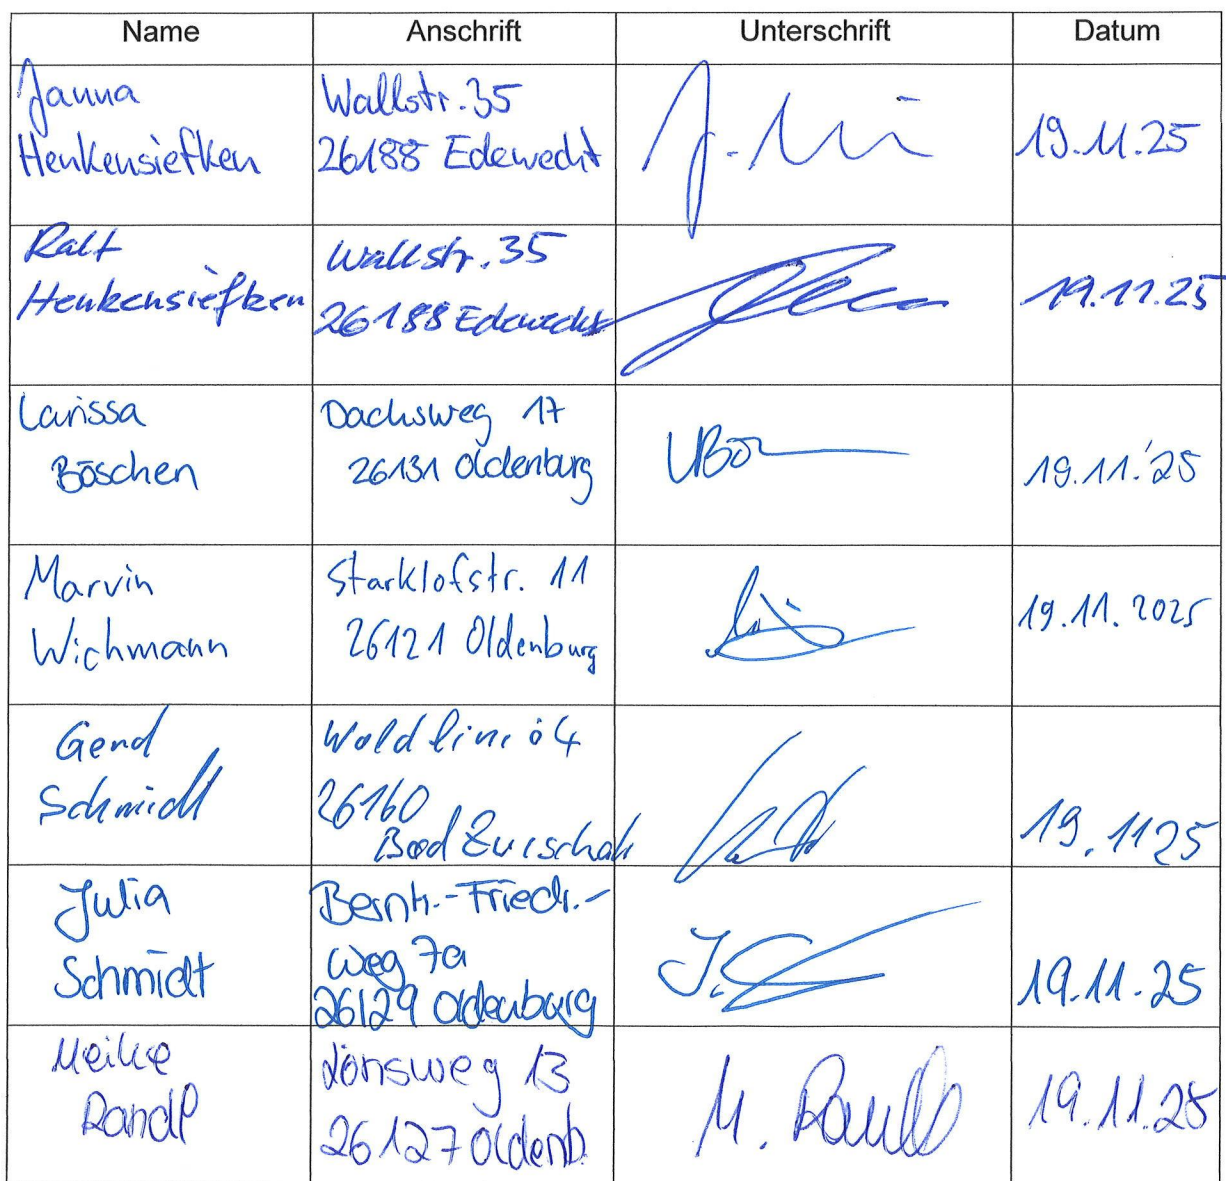 Name Anschrift Unterschrift Datum
Janna
Henkensiefken
Wallstr. 35
26188 Edewecht
19.11.25
Ralf
Henkensiefken
Wallstr. 35
26188 Edewecht
19.11.25
Larissa
Böschen
Dachsweg 17
26131 Oldenburg
19.11.'25
Marvin
Wichmann
Starklofstr. 11
26121 Oldenburg
19.11.2025
Gerd
Schmidt
26160
Bad
19.1125
Julia
Schmidt
Bernh.-Friedr.-
Weg 7a
26129 Oldenburg
J.
19.11.25
Meike
Randl
Lönsweg 13
26127 Oldenb.
M. Randl
19.11.25